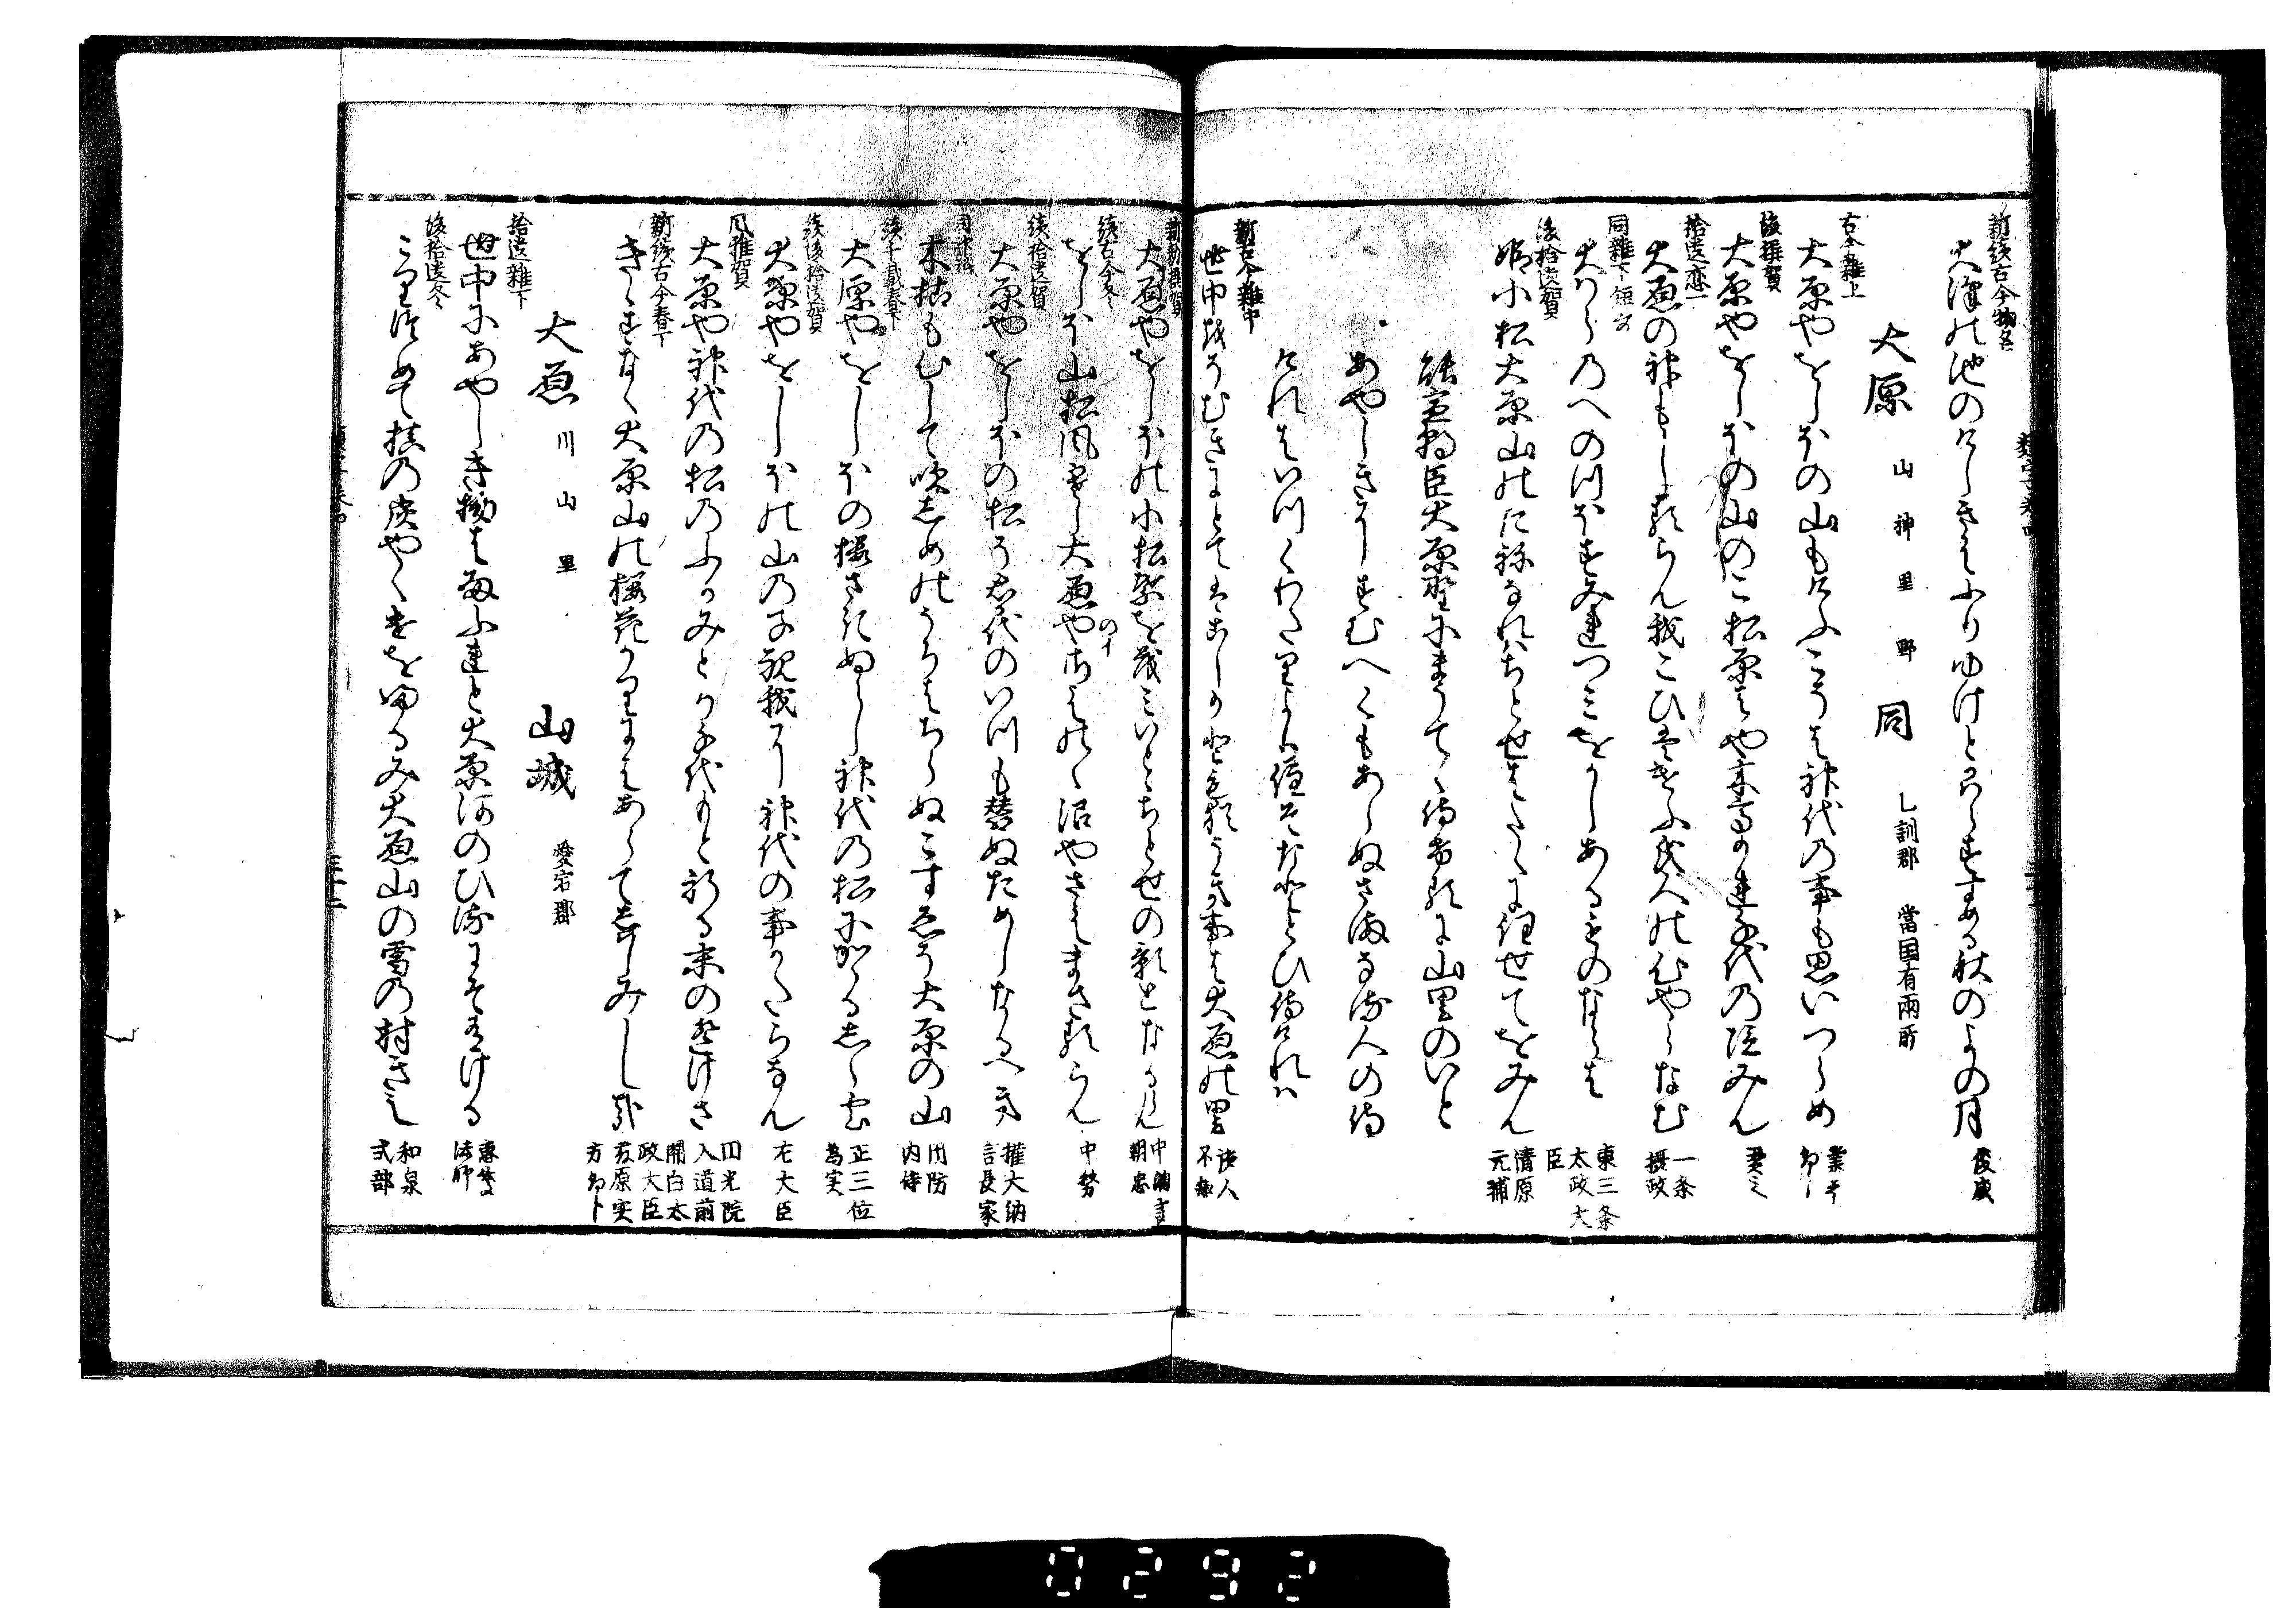 新続古今物名
大沢の池のけしきはふりゆけとかはらすすめる秋のよの月
俊成
大原 山 神 里 野 同 乙訓郡 當国有両所
古今雑上
大原やをしほの山もけふこそは神代の事も思いつらめ
業平
後撰賀
大原やをしほの山のこ松原はや木高かれ千代の陰みん
貫之
拾遺恋一
大原の神もしるらん我こひはけふ氏人の心やらなむ
一条
摂政
同雑下
大はらのへのつほすみれつみをかしあるものならは
東三条
太政大
臣
後拾遺賀
姫小松大原山のたねなれはちとせはたゝに任せてをみん
清原
元輔
大原野にまうてゝ侍けるに山里のいと
あやしきにすむへくもあらぬさまなる人の侍
けれはいつくわたりより住そなとひ侍けれは
新古今雑中
世中をそむきにとてはこしかとも猶うき事は大原の里
読人
不知
新勅撰賀
大原やをしほの小松葉を茂みいとゝちとせの影とならなん
中納言
朝忠
続古今冬
をしほ山松風寒し大原やさえのゝ沼やさえまさるらん
中務
続拾遺賀
大原やをしほの松そ君代のいつも替ぬためしなるへき
権大納
言長家
木枯もむして吹しめのうちはちらぬこすゑそ大原の山
周防
内侍
続千載春下
大原やをしほの桜さきぬらし神代の松にかゝるしら雲
正三位
為実
続後拾遺賀
大原やをしほの山の子規我に神代の事かたらなん
左大臣
風雅賀
大原や神代の松のふかみとり千代もと祈る末のはるけさ
円光院
入道前
関白太
政大臣
新続古今春下
きゝすなく大原山の桜花かりにはあらてしはしみし哉
藤原実
方朝臣
大原 川 山 里 山城 愛宕郡
拾遺雑下
世中にあやしき物は雨ふれと大原河のひるにそ有ける
恵慶
法師
後拾遺冬
こりつめて槙の炭やくけをぬるみ大原山の雪の村きえ
和泉
式部
0292